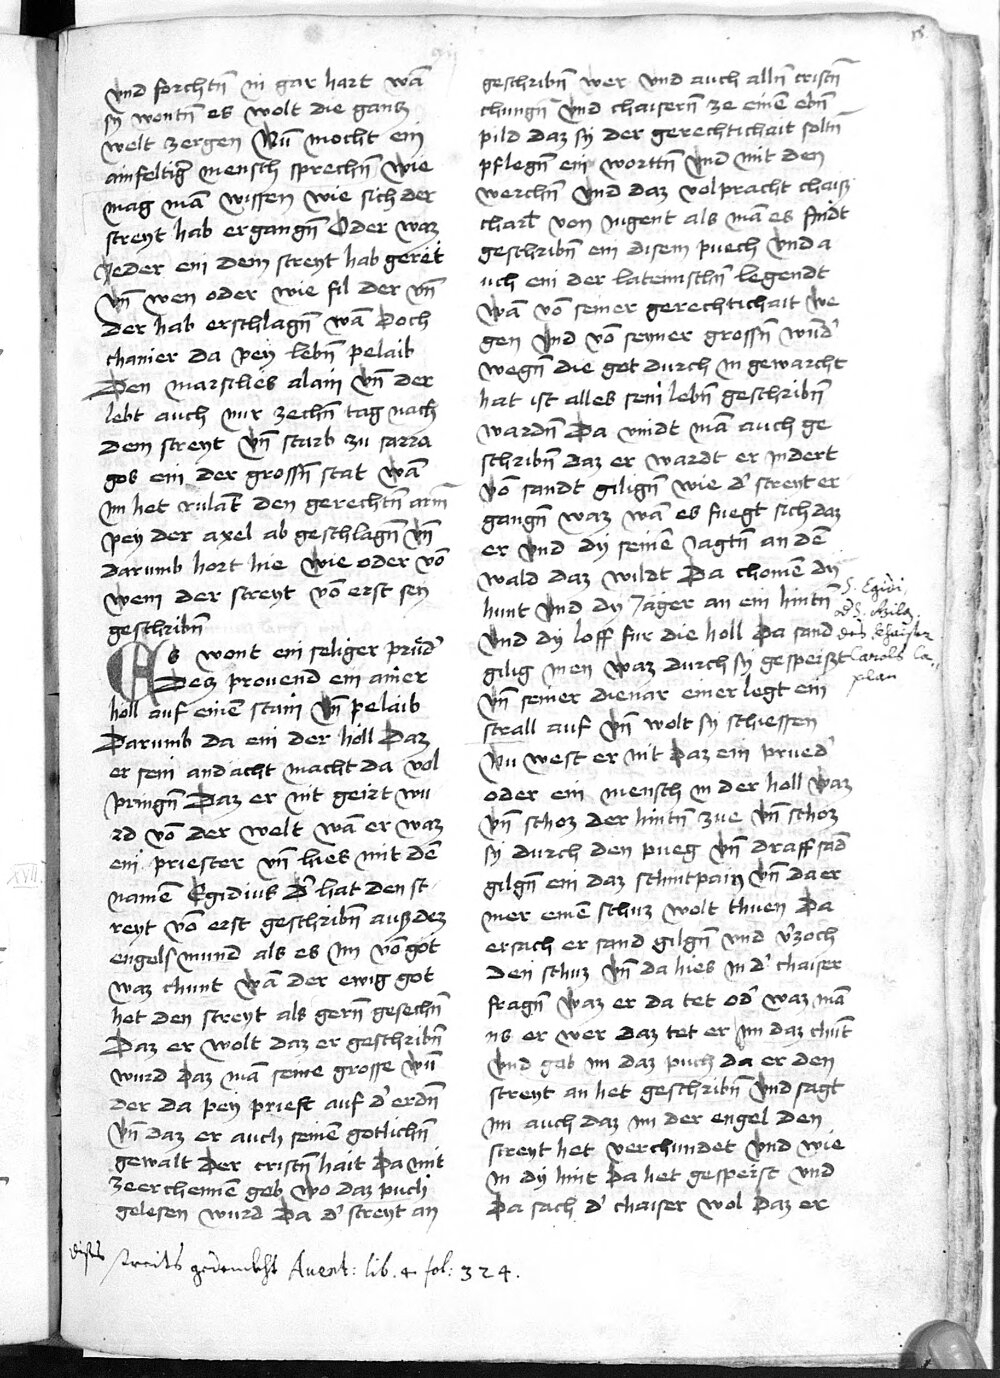 18.
vnd forchtñ in gar hart wā
sy wontñ es wolt die gancz
welt zergen Nū mocht ein
ainfeltigʳ mensch sprechñ wie
mag mā wissen wie sich der
streyt hab ergangñ Oder waz
yeder ein dem streyt hab gereit
vñ wen oder wie fil der vñ
der hab erschlagñ wā Doch
chamer da pey lebñ pelaib
Den marschles alain vñ der
lebt auch nur zechñ tag nach
dem streyt vñ starb zu sarra
gos ein der grossñ stat wā
Im het rulāt den gerechtñ armˉ
pey der axel ab geschlagñ vñ
darumb hort hie wie oder vō
wem der streyt vō erst sey
geschribñ
Es wont ein seliger prūdʳ
Desz prouend ein ainer
holl auf einē stain vñ pelaib
Darumb da ein der holl Daz
er sein andacht macht da vol
pringñ Daz er nit geirt wu
rd vō der welt wā er waz
ein priester vñ hies mit dē
namē Egidius dʳ hat den st
reyt vō erst geschribñ ausz dez
engels mund als es im vō got
waz chunt wā der ewig got
het den streyt als gerñ gesechñ
Daz er wolt daz er geschribñ
wurd Daz mā seine grosse wū
der da pey prieft auf dʳ erdñ
vñ daz er auch seinē gotlichñ
gewalt Der cristñhait Da mit
zeerchennē geb wo daz puch
gelesen wurd Da dʳ streyt an
geschribñ wer vnd auch allñ cristñ
chungñ vnd chaisernˉ ze einē ebñ
pild daz sy der gerechtichait soltñ
pflegñ ein worttñ vnd mit den
werchñ vnd daz volpracht chaisz
charl von nigent als mā es findt
geschribñ ein disem puech vnd a
uch ein der lateinischñ legendt
wā vō seiner gerechtichait we
gen vnd vō seyner grossñ wūdʳ
wegñ die got durch in gewarcht
hat ist alles sein lebñ geschribñ
wardñ Da vindt mā auch ge
schribñ daz er wardt er indert
vō sandt giligñ wie dʳ streyt er
gangñ waz wā es fuegt sich daz
er vnd dy seinē iagtñ an dē
wald daz wildt Da chomē dy
hunt vnd dy Jäger an ein hintñ
vnd dy loff fur die holl Da sand
gilig inen waz durch sy gespeiszt
vñ seiner dienar einer legt ein
strall auf vñ wolt sy schiessen
Nu west er nit Daz ein pruedʳ
oder ein mensch in der holl waz
vñ schoz der hintñ zue vñ schoz
sy durch den pueg vñ draff sād
gilgñ ein daz schintpain vñ da er
mer einē schuz wolt thuen Da
ersach er sand gilgñ vnd vʳzoch
den schuz vñ da hies in dʳ chaiser
fragñ waz er da tet odʳ waz mā
ns er wer daz tet er im daz chūt
vnd gab im daz puch da er den
streyt an het geschribñ vnd sagt
im auch daz im der engel den
streyt het verchundet vnd wie
in dy hint Da het gespeist vnd
Da sach dʳ chaiser wol Daz er
S. Egidi,
des khaysers
Carols
plan
dises streits gedenckht Auent: lib. 4 fol: 324.